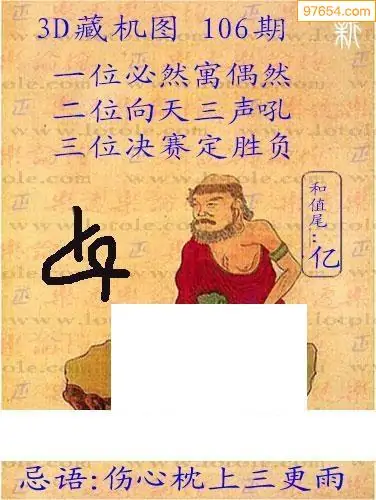 97654.com
3D藏机图 106期
一位必然寓偶然
二位向天三声吼
三位决赛定胜负
和值尾:亿
www.lotole.com
忌语:伤心枕上三更雨